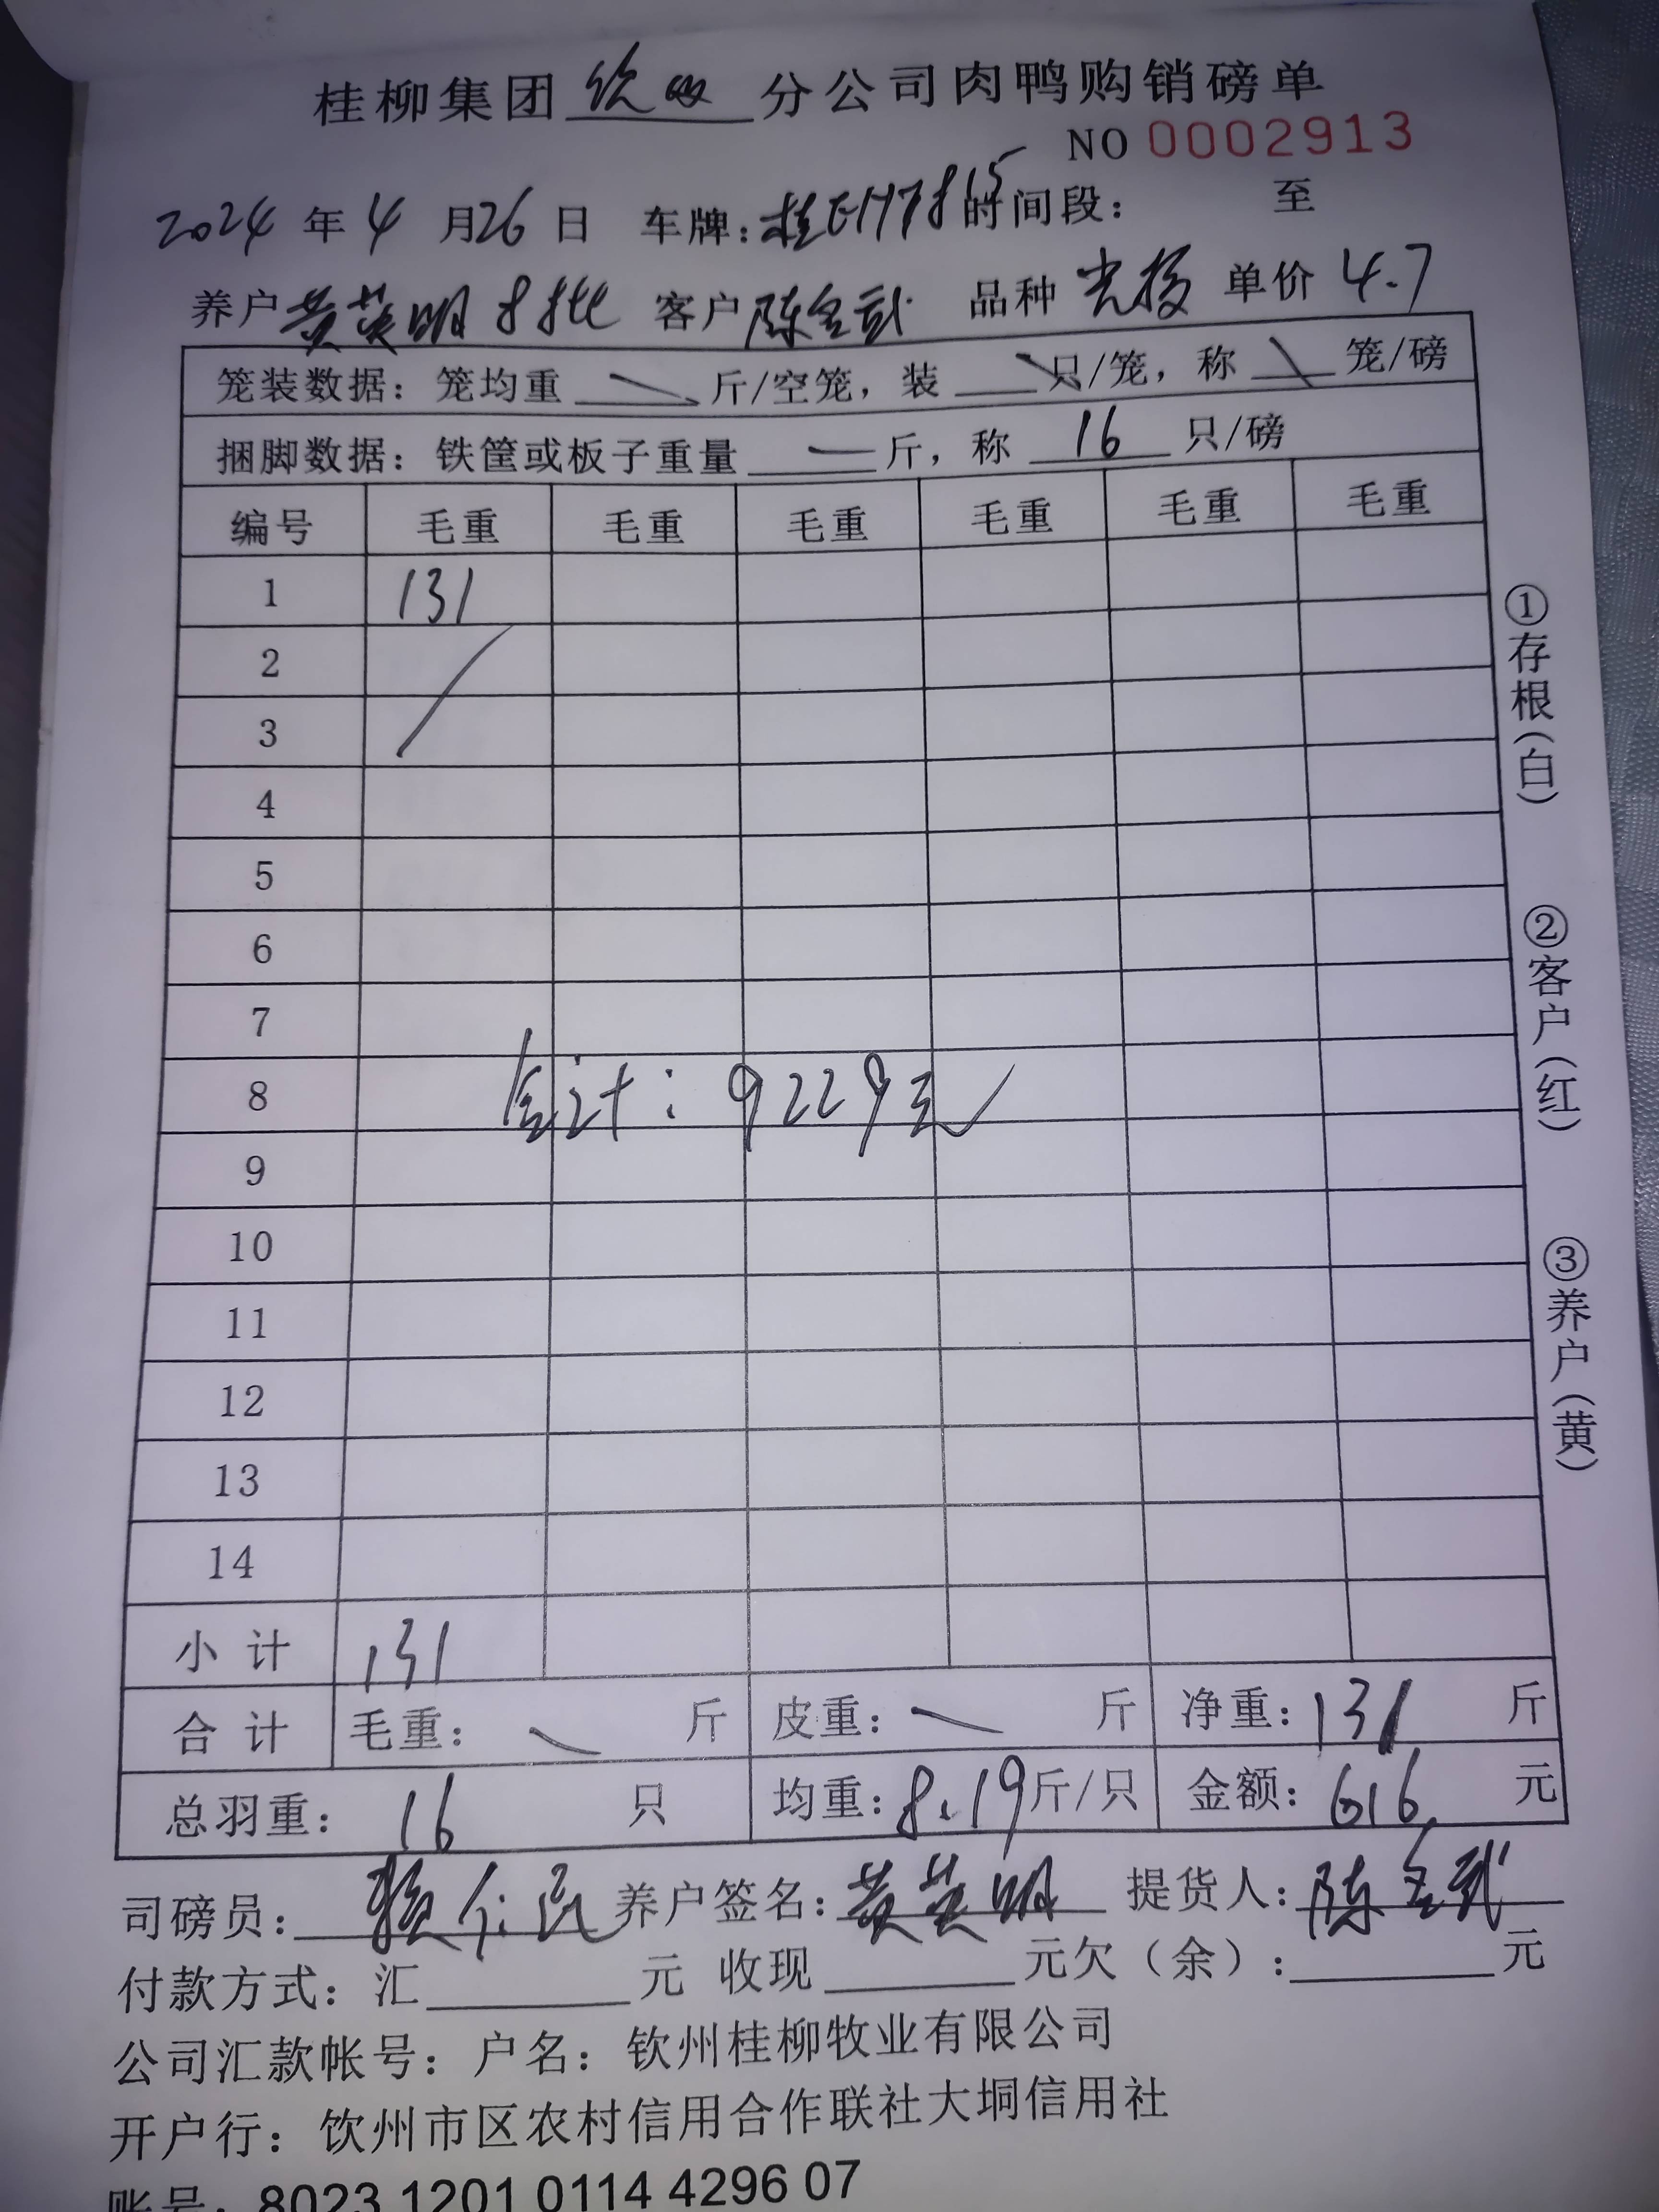 桂柳集团 钦州 分公司肉鸭购销磅单
NO 0002913
2024 年 4 月 26 日 车牌: 桂EH7815 时间段: 至
养户 黄英明 8批 客户 陈全武 品种 单价 4.7
笼装数据: 笼均重 斤/空笼, 装 只/笼, 称 笼/磅
捆脚数据: 铁筐或板子重量 一 斤, 称 16 只/磅
编号 毛重 毛重 毛重 毛重 毛重 毛重
1 131
2
3
4
5
6
7
8 合计: 9229元
9
10
11
12
13
14
小计 131
合计 毛重: 斤 皮重: 斤 净重: 131 斤
总羽重: 16 只 均重: 8.19 斤/只 金额: 616 元
司磅员: 养户签名: 黄英明 提货人: 陈全武
付款方式: 汇 元 收现 元欠(余): 元
公司汇款帐号: 户名: 钦州桂柳牧业有限公司
开户行: 钦州市区农村信用合作联社大垌信用社
账号: 8023 1201 0114 4296 07
①存根(白)
②客户(红)
③养户(黄)